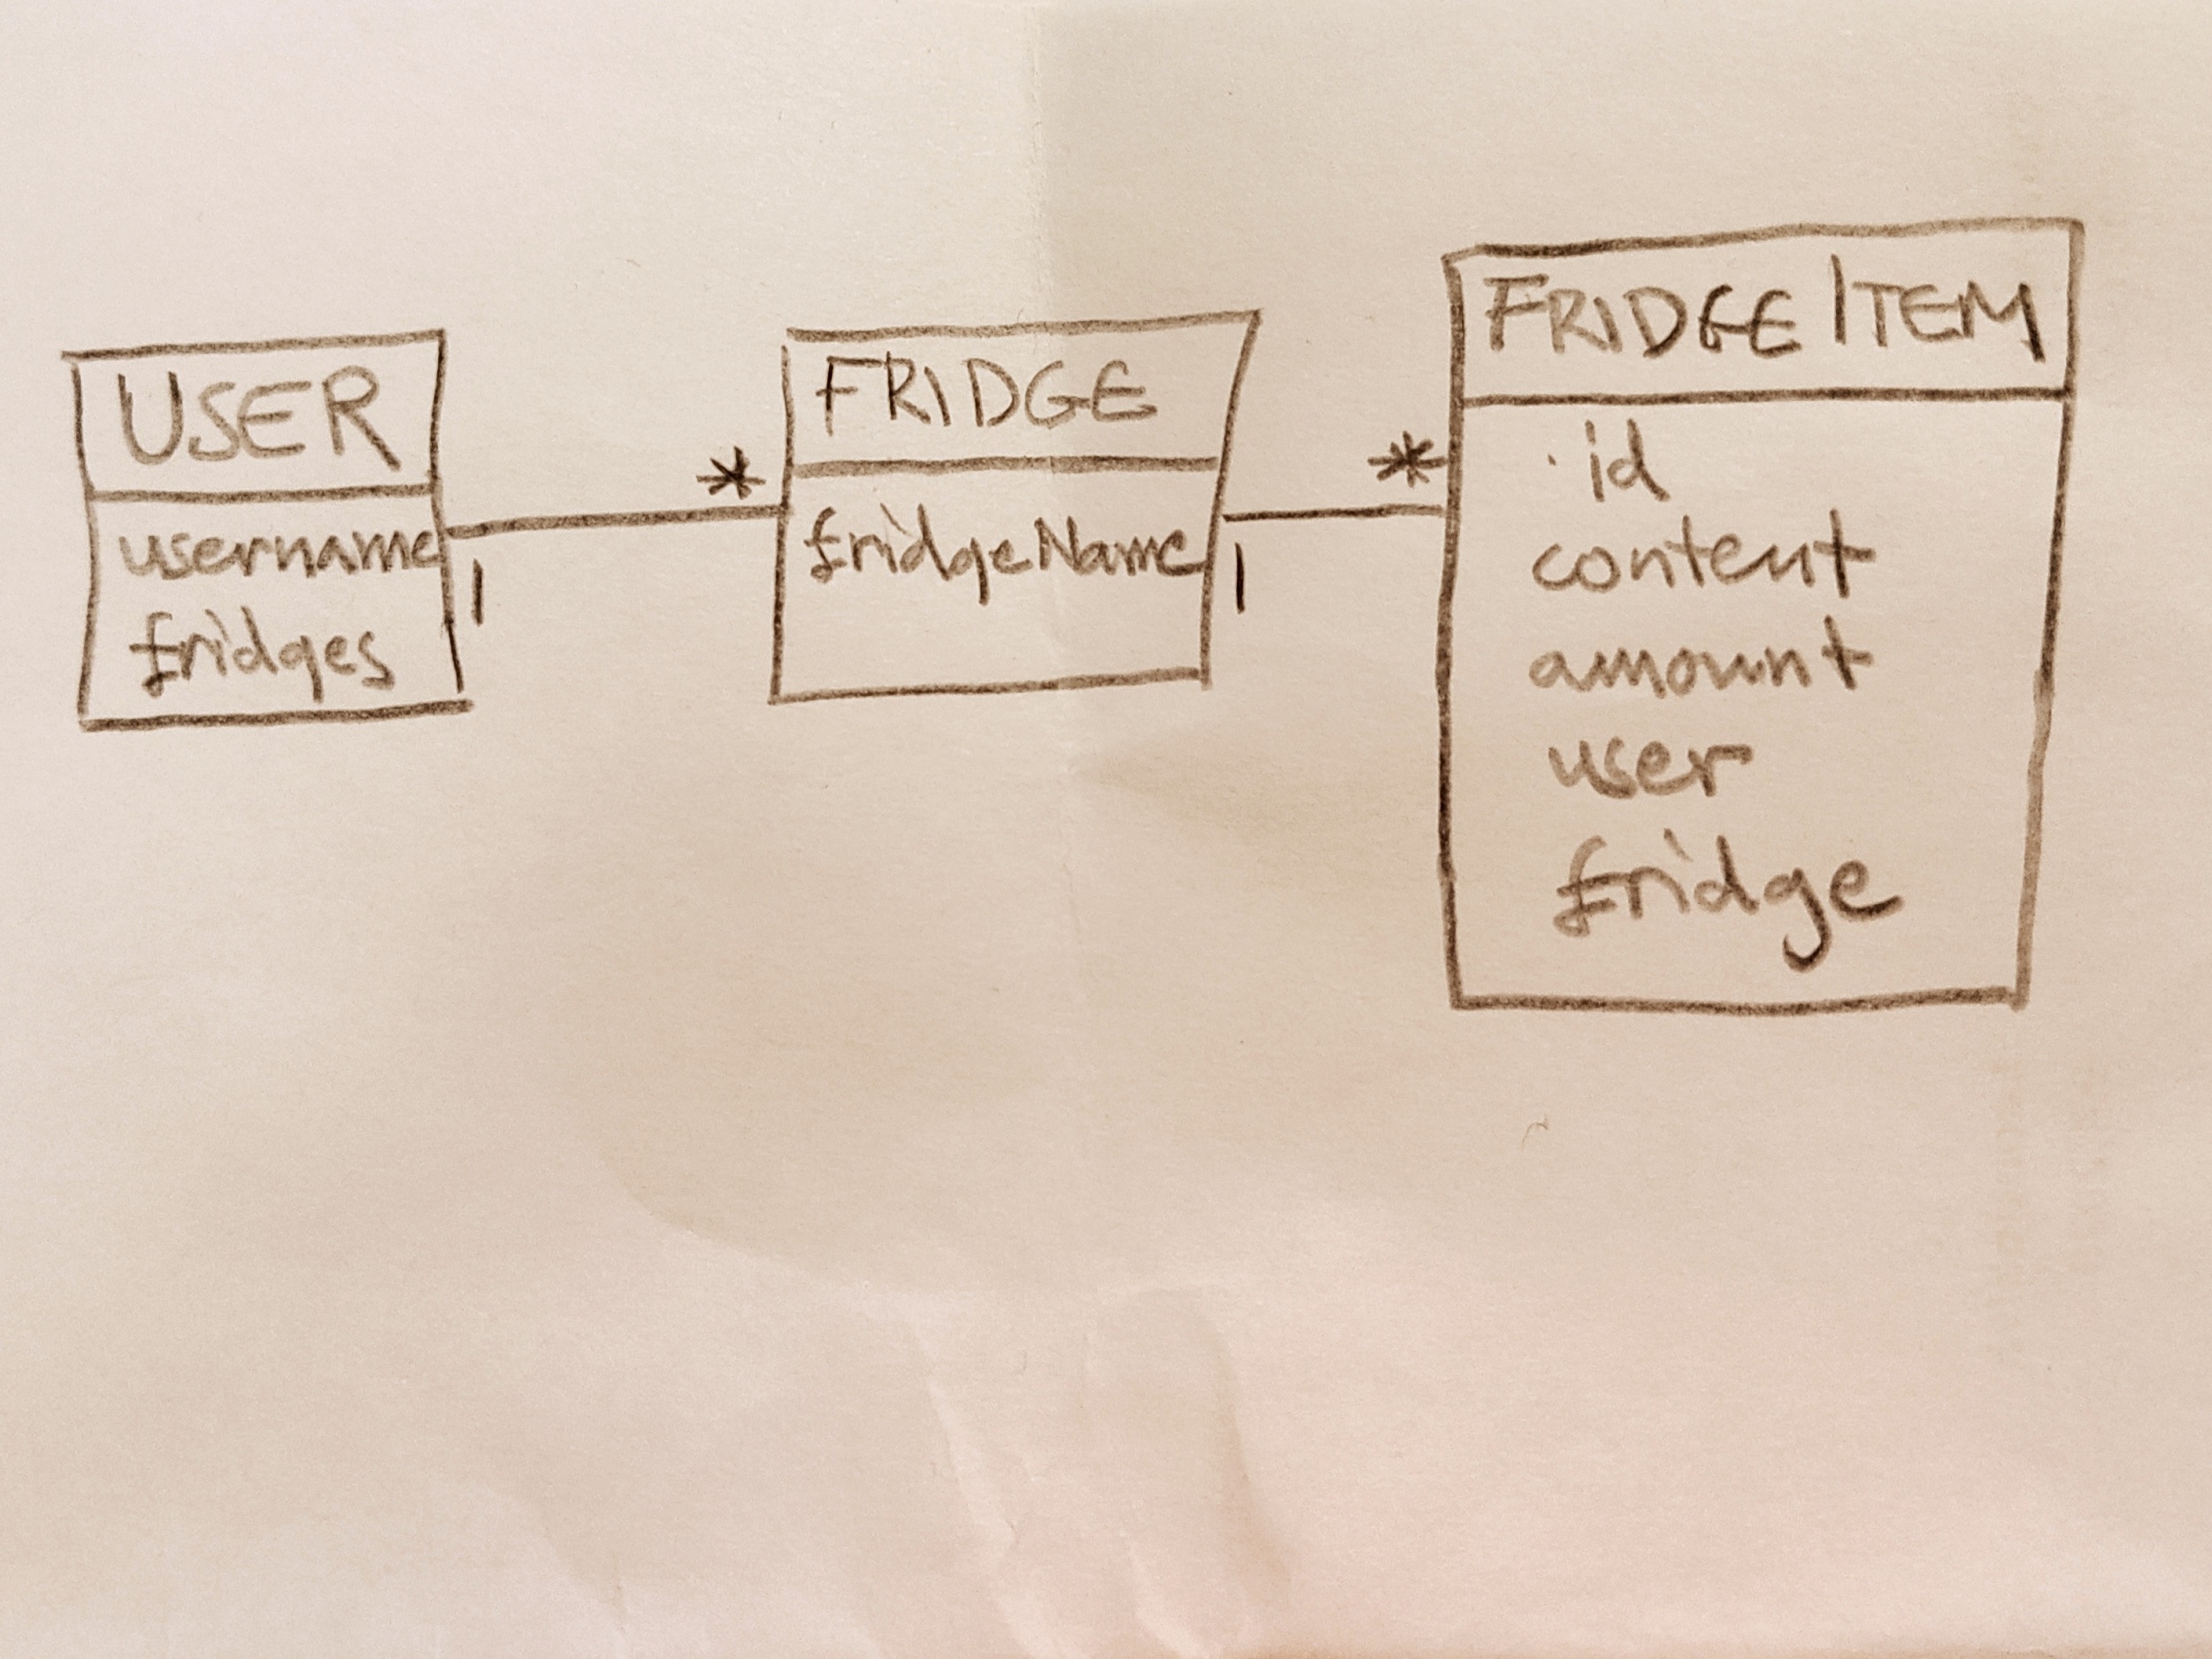 USER
username
fridges
1
*
FRIDGE
fridgeName
1
*
FRIDGEITEM
id
content
amount
user
fridge